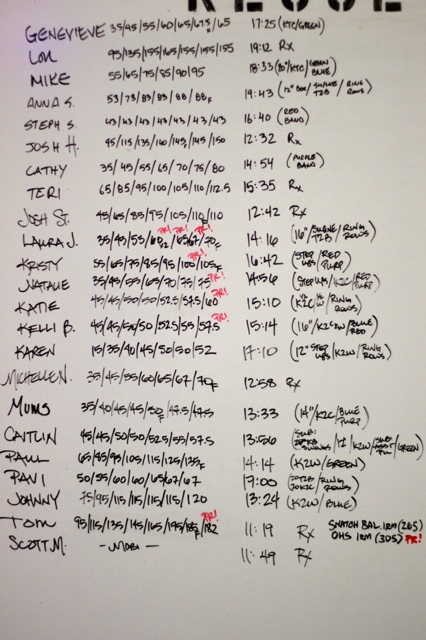 GENEVIEVE 35/45/55/60/65/67.5F/65 17:25 (KTC/GREEN)
LOU 95/135/155/165/155/155/155 19:12 Rx
MIKE 55/65/75/85/90/95 18:33 (20"/KTC/GREEN BLUE)
ANNA S. 53/73/83/83/88/88F 19:43 (12" BOX/SUPINE/RING T2B ROWS)
STEPH S. 43/43/43/43/43/43/43 16:40 (RED BAND)
JOSH H. 95/115/135/140/145F/145/150 12:32 Rx
CATHY 35/45/55/65/70/75/80 14:54 (PURPLE BAND)
TERI 65/85/95/100/105/110/112.5 15:35 Rx
JOSH ST. 45/65/85/95/105/110F/110 12:42 Rx
LAURA J. 35/45/55/ PR! PR! PR! /70F 14:16 (16"/SUPINE/RING T2B ROWS)
KRISTY 55/65/75/85/95/100/105F PR! 16:42 (STEP/RED UPS/PURP)
NATALIE 35/45/55/65/70/75/75 PR! 14:56 (STEP UPS/K2C/RED PURP)
KATIE 45/45/50/50/52.5/57.5/60 PR! 15:10 (K2C/ /RING ROWS)
KELLI B. 45/45/50/50/52.5/55/57.5 PR! 15:14 (16"/K2C /BLUE RED)
KAREN 15/35/40/45/50/50/52 17:10 (12" STEP UPS/K2W/RING ROWS)
MICHELLE N. 35/45/55/60/65/67/70F 12:58 Rx
MUMS 35/40/45/45/50F/47.5/47.5 13:33 (14"/K2C/BLUE PURP)
CAITLIN 45/45/50/50/52.5/55/57.5 13:56 (SUB: /K2W/ /GREEN)
PAUL 65/85/95/105/115/125/135F 14:14 (K2W/GREEN)
PAVI 50/55/60/60/65/67/67 17:00 ( /RING ROWS)
JOHNNY 75/95/115/115/115/115/120 13:24 (K2W/BLUE)
TOM 95/115/135/145/165/195/185F/182 PR! 11:19 Rx SNATCH BAL. 1RM (265)
OHS 1RM (305) PR!
SCOTT M. - MOBI - 11:49 Rx